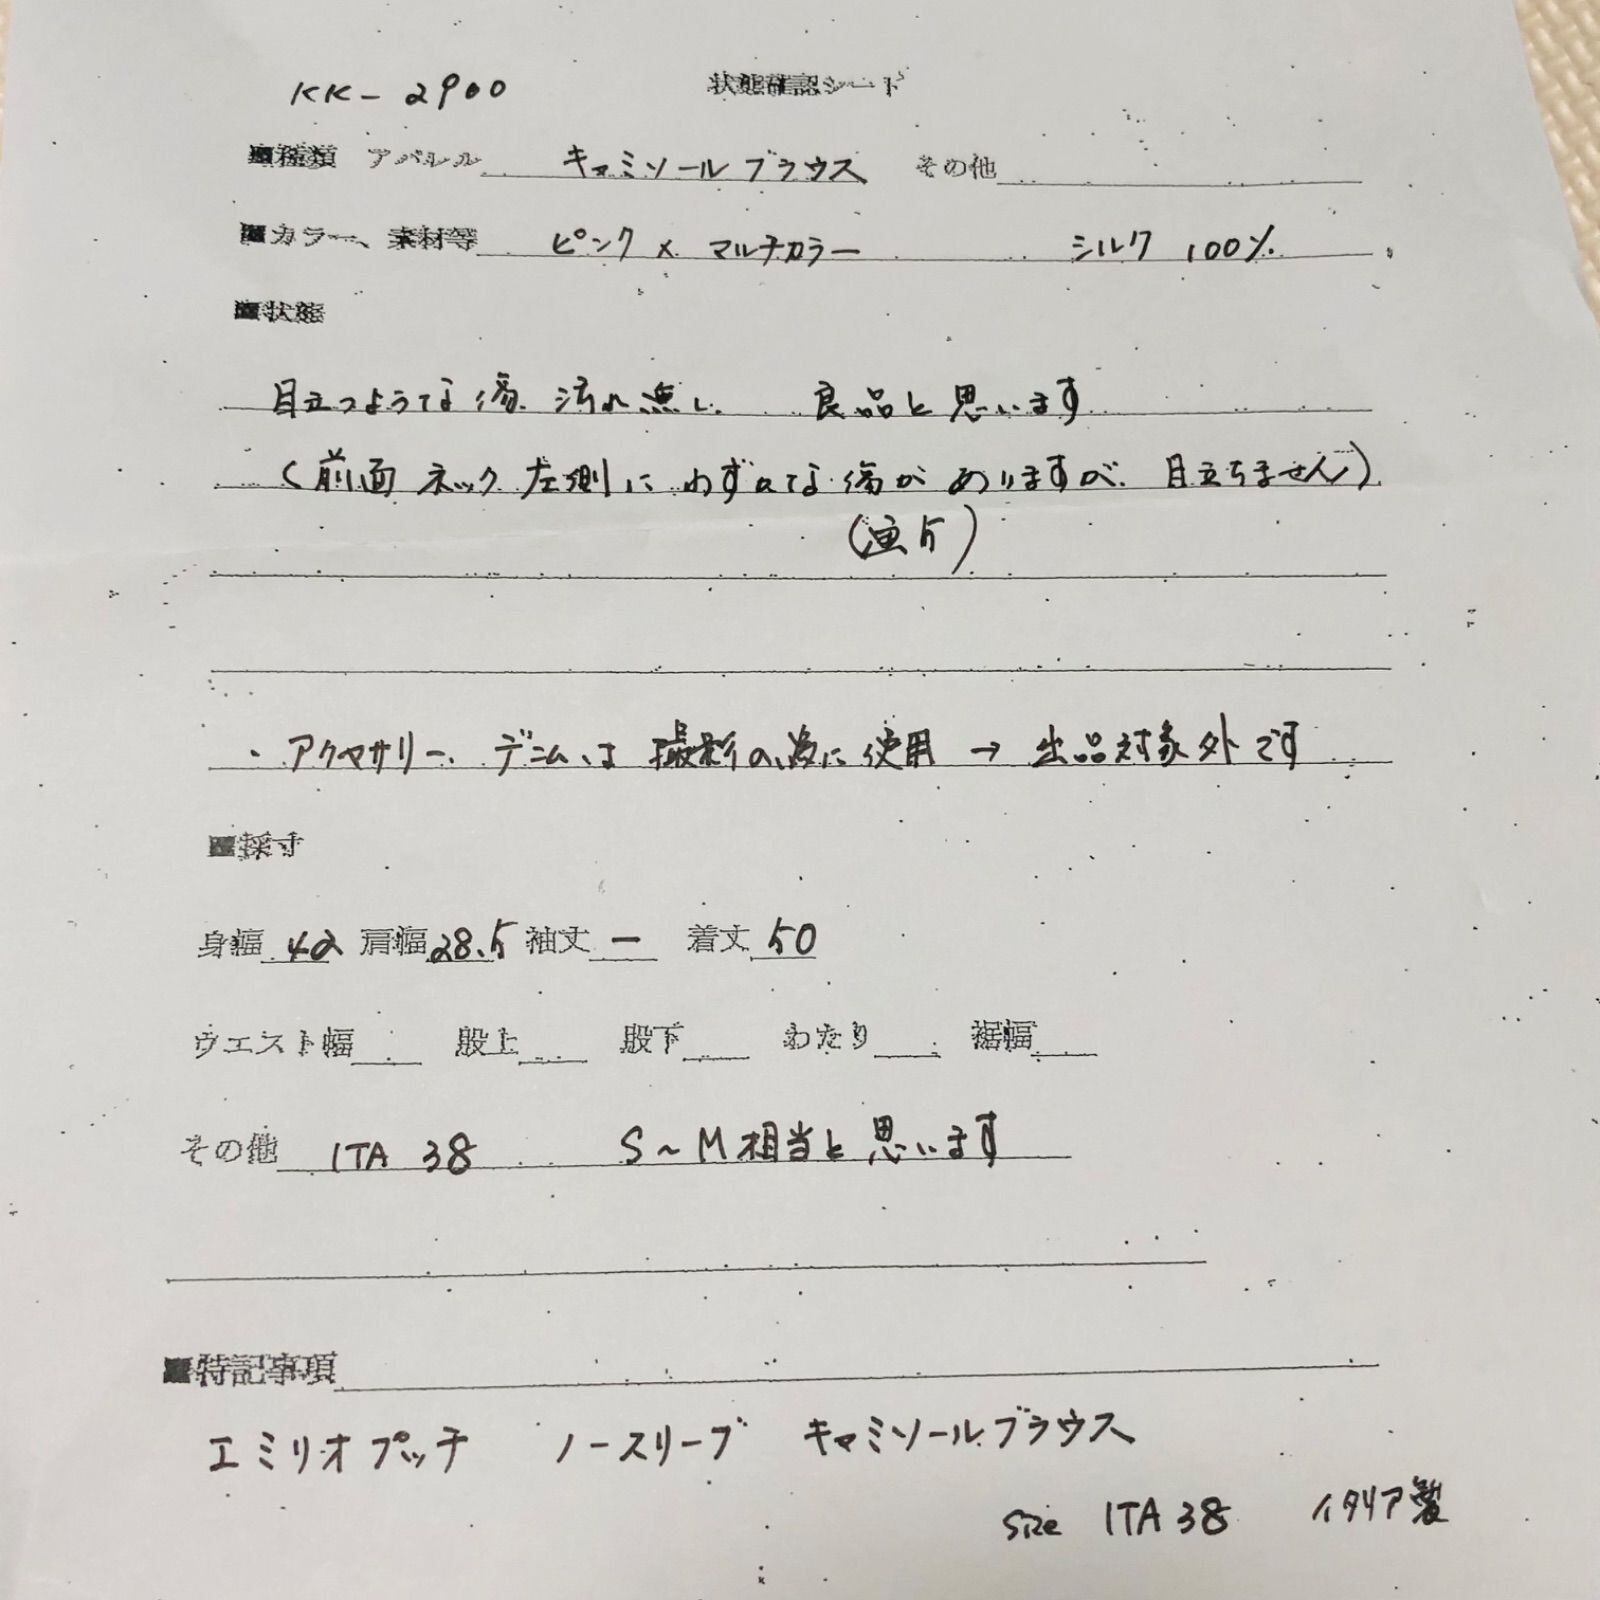 KK-2900 状態確認シート
■種類 アパレル キャミソールブラウス その他
■カラー、素材等 ピンク×マルチカラー シルク 100%
■状態
目立つような傷、汚れ無し、 良品と思います
(前面ネック左側にわずかな傷がありますが、目立ちません)
(画5)
・アクセサリー、デニムは撮影の為に使用 → 出品対象外です
■採寸
身幅 42 肩幅 28.5 袖丈 ー 着丈 50
ウエスト幅 股上 股下 わたり 裾幅
その他 ITA 38 S～M相当と思います
■特記事項
エミリオプッチ ノースリーブ キャミソールブラウス
size ITA 38 イタリア製